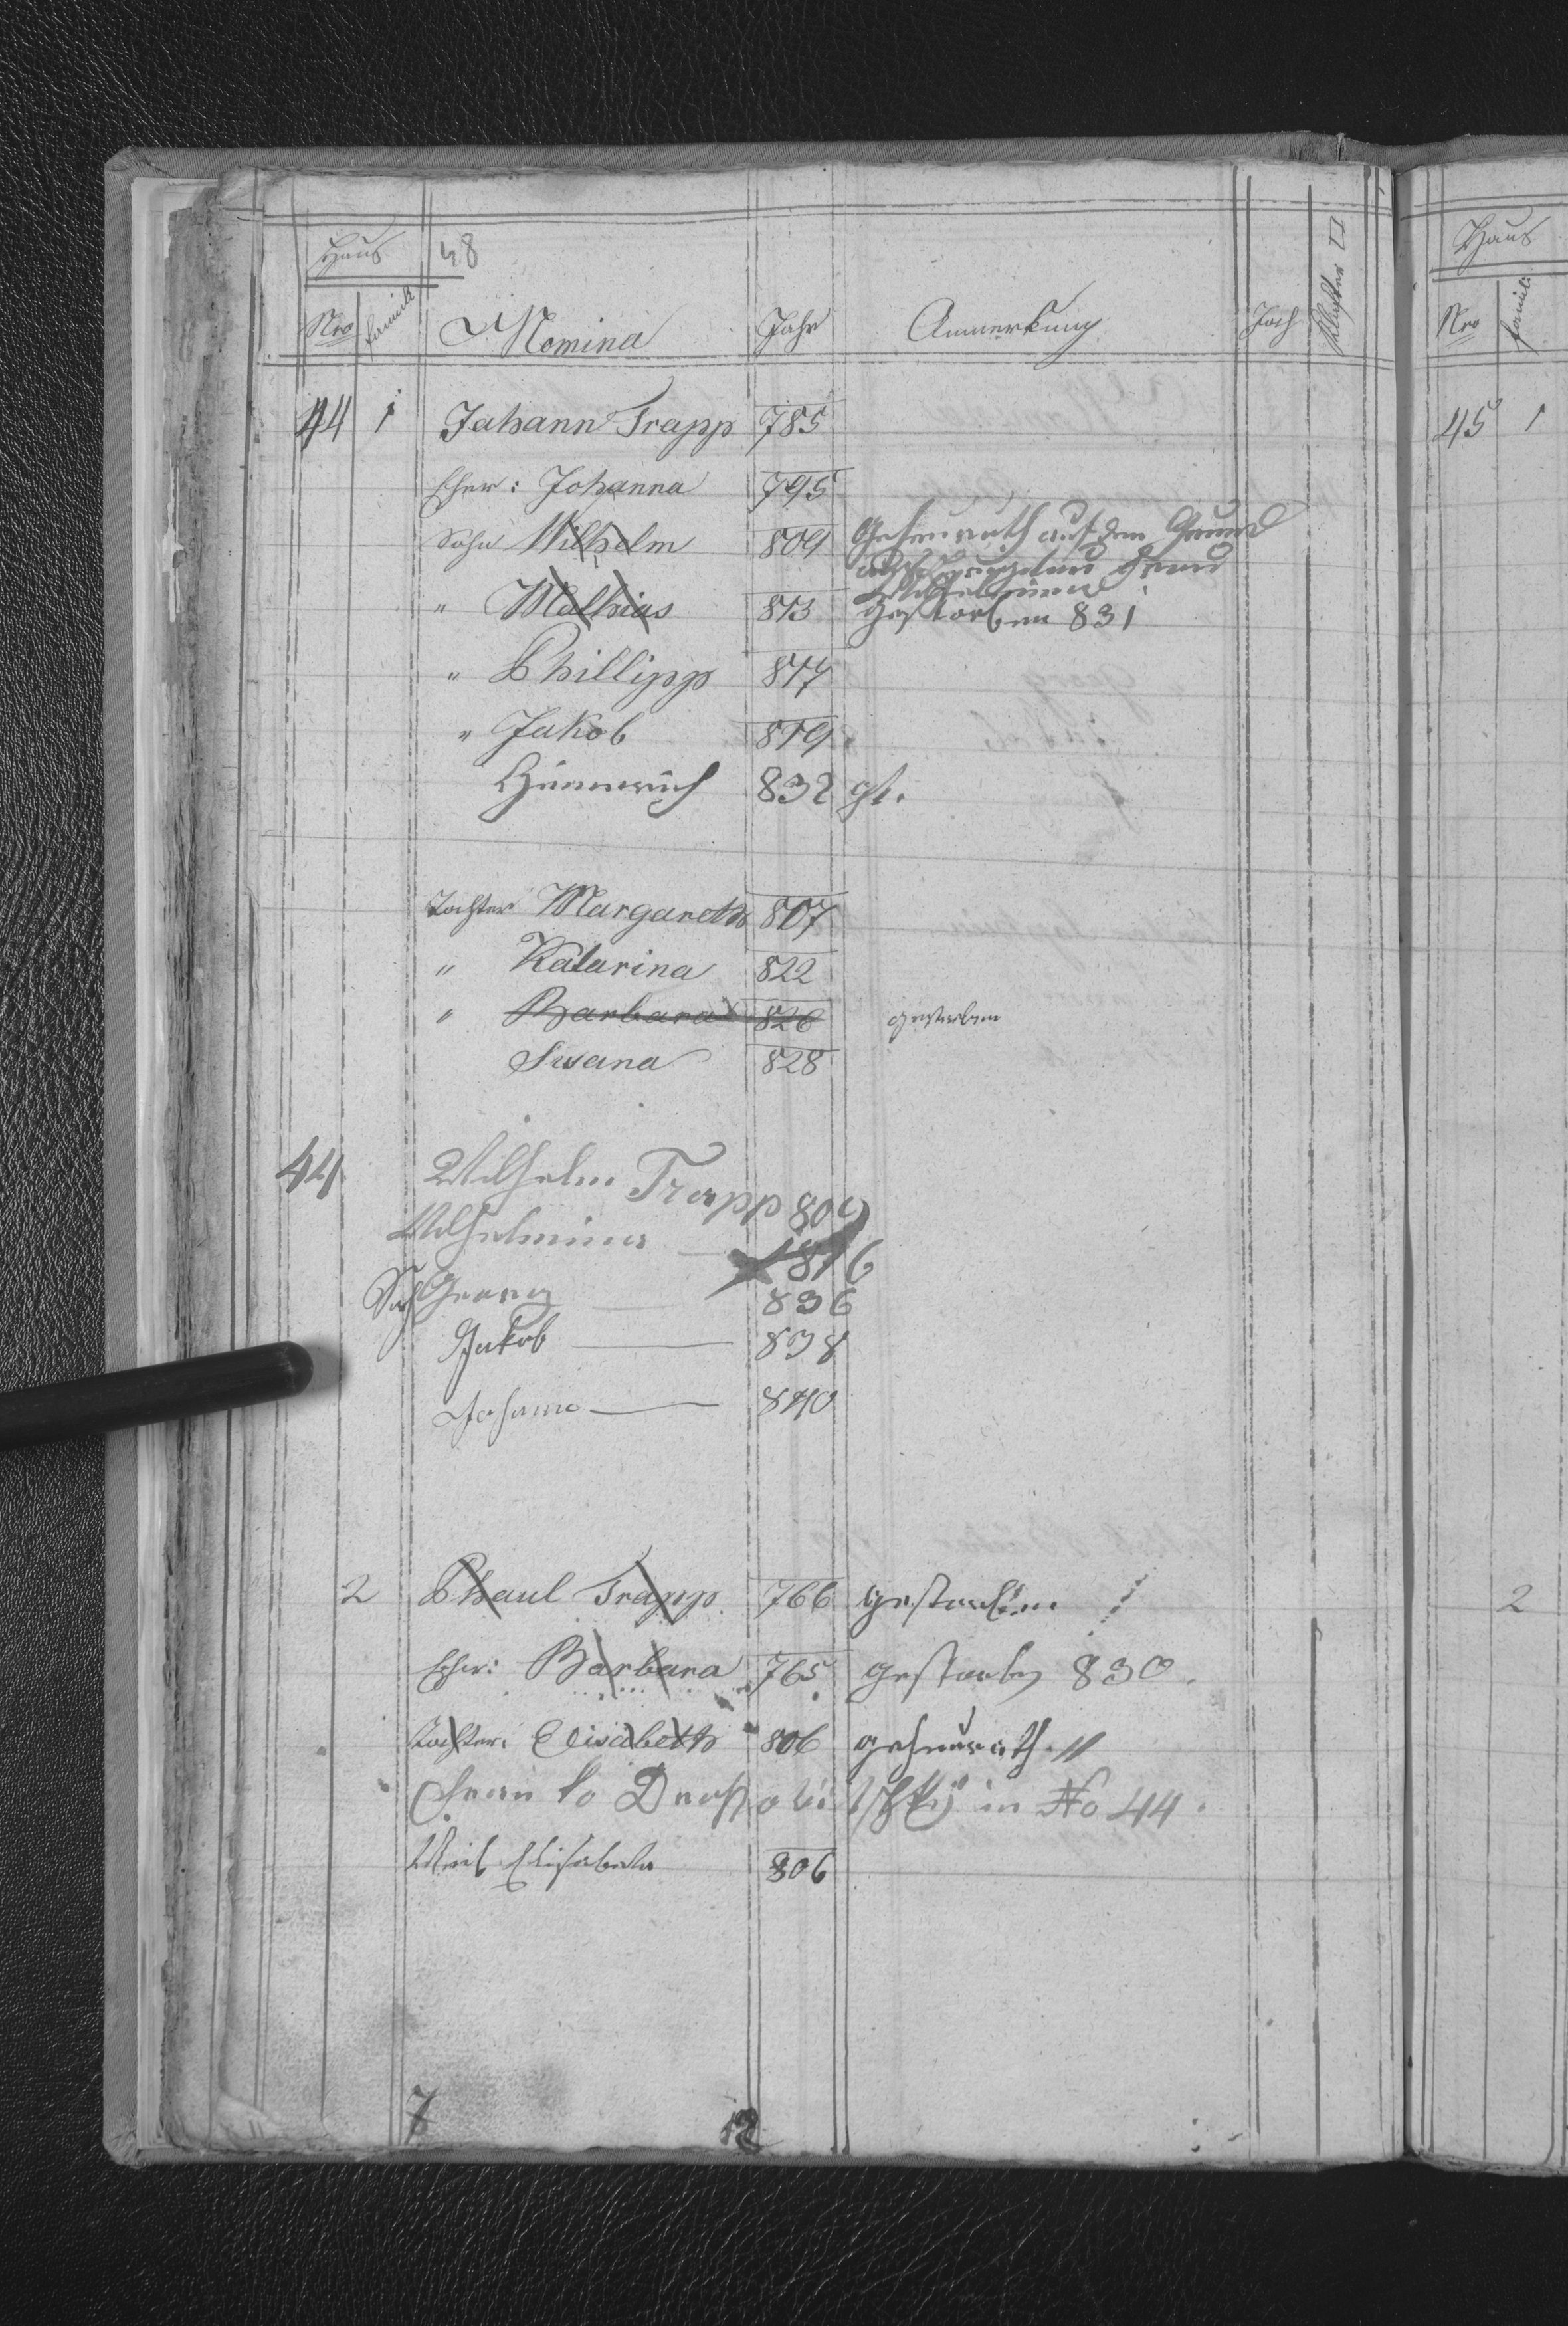 Haus 48
Nro Famili Nomina Jahr Anmerkung Joch Klafter
44 1 Johann Trapp 785
Eher: Johanna 795
Sohn Wilhelm 809 Geheurath auf den Grund
Grund
" Mathias 813 Gestorben 831
" Phillipp 817
" Jakob 819
Heinerich 832 gst.
Tochter Margareth 807
" Katarina 822
" Barbara 826 gestorben
Susana 828
44 Wilhelm Trapp 809
Wilhelmina 816
Soh Georg 836
Jakob 838
Johann 840
2 Phaul Trapp 766 gestorben
Eher: Barbara 765 gestorben 830.
Tochter: Elisabeth 806 geheurath
in No 44.
Weib Elisabetha 806
7 12
Haus
Nro Famili
45 1
2